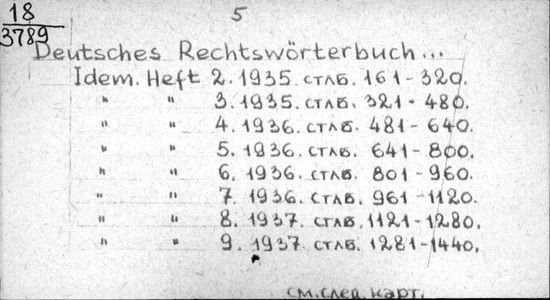 18
3789
5
Deutsches Rechtswörterbuch...
Idem. Heft 2. 1935. стлб. 161-320.
" " 3. 1935. стлб. 321-480.
" " 4. 1936. стлб. 481-640.
" " 5. 1936. стлб. 641-800.
" " 6. 1936. стлб. 801-960.
" " 7. 1936. стлб. 961-1120.
" " 8. 1937. стлб. 1121-1280.
" " 9. 1937. стлб. 1281-1440.
см. след. карт.